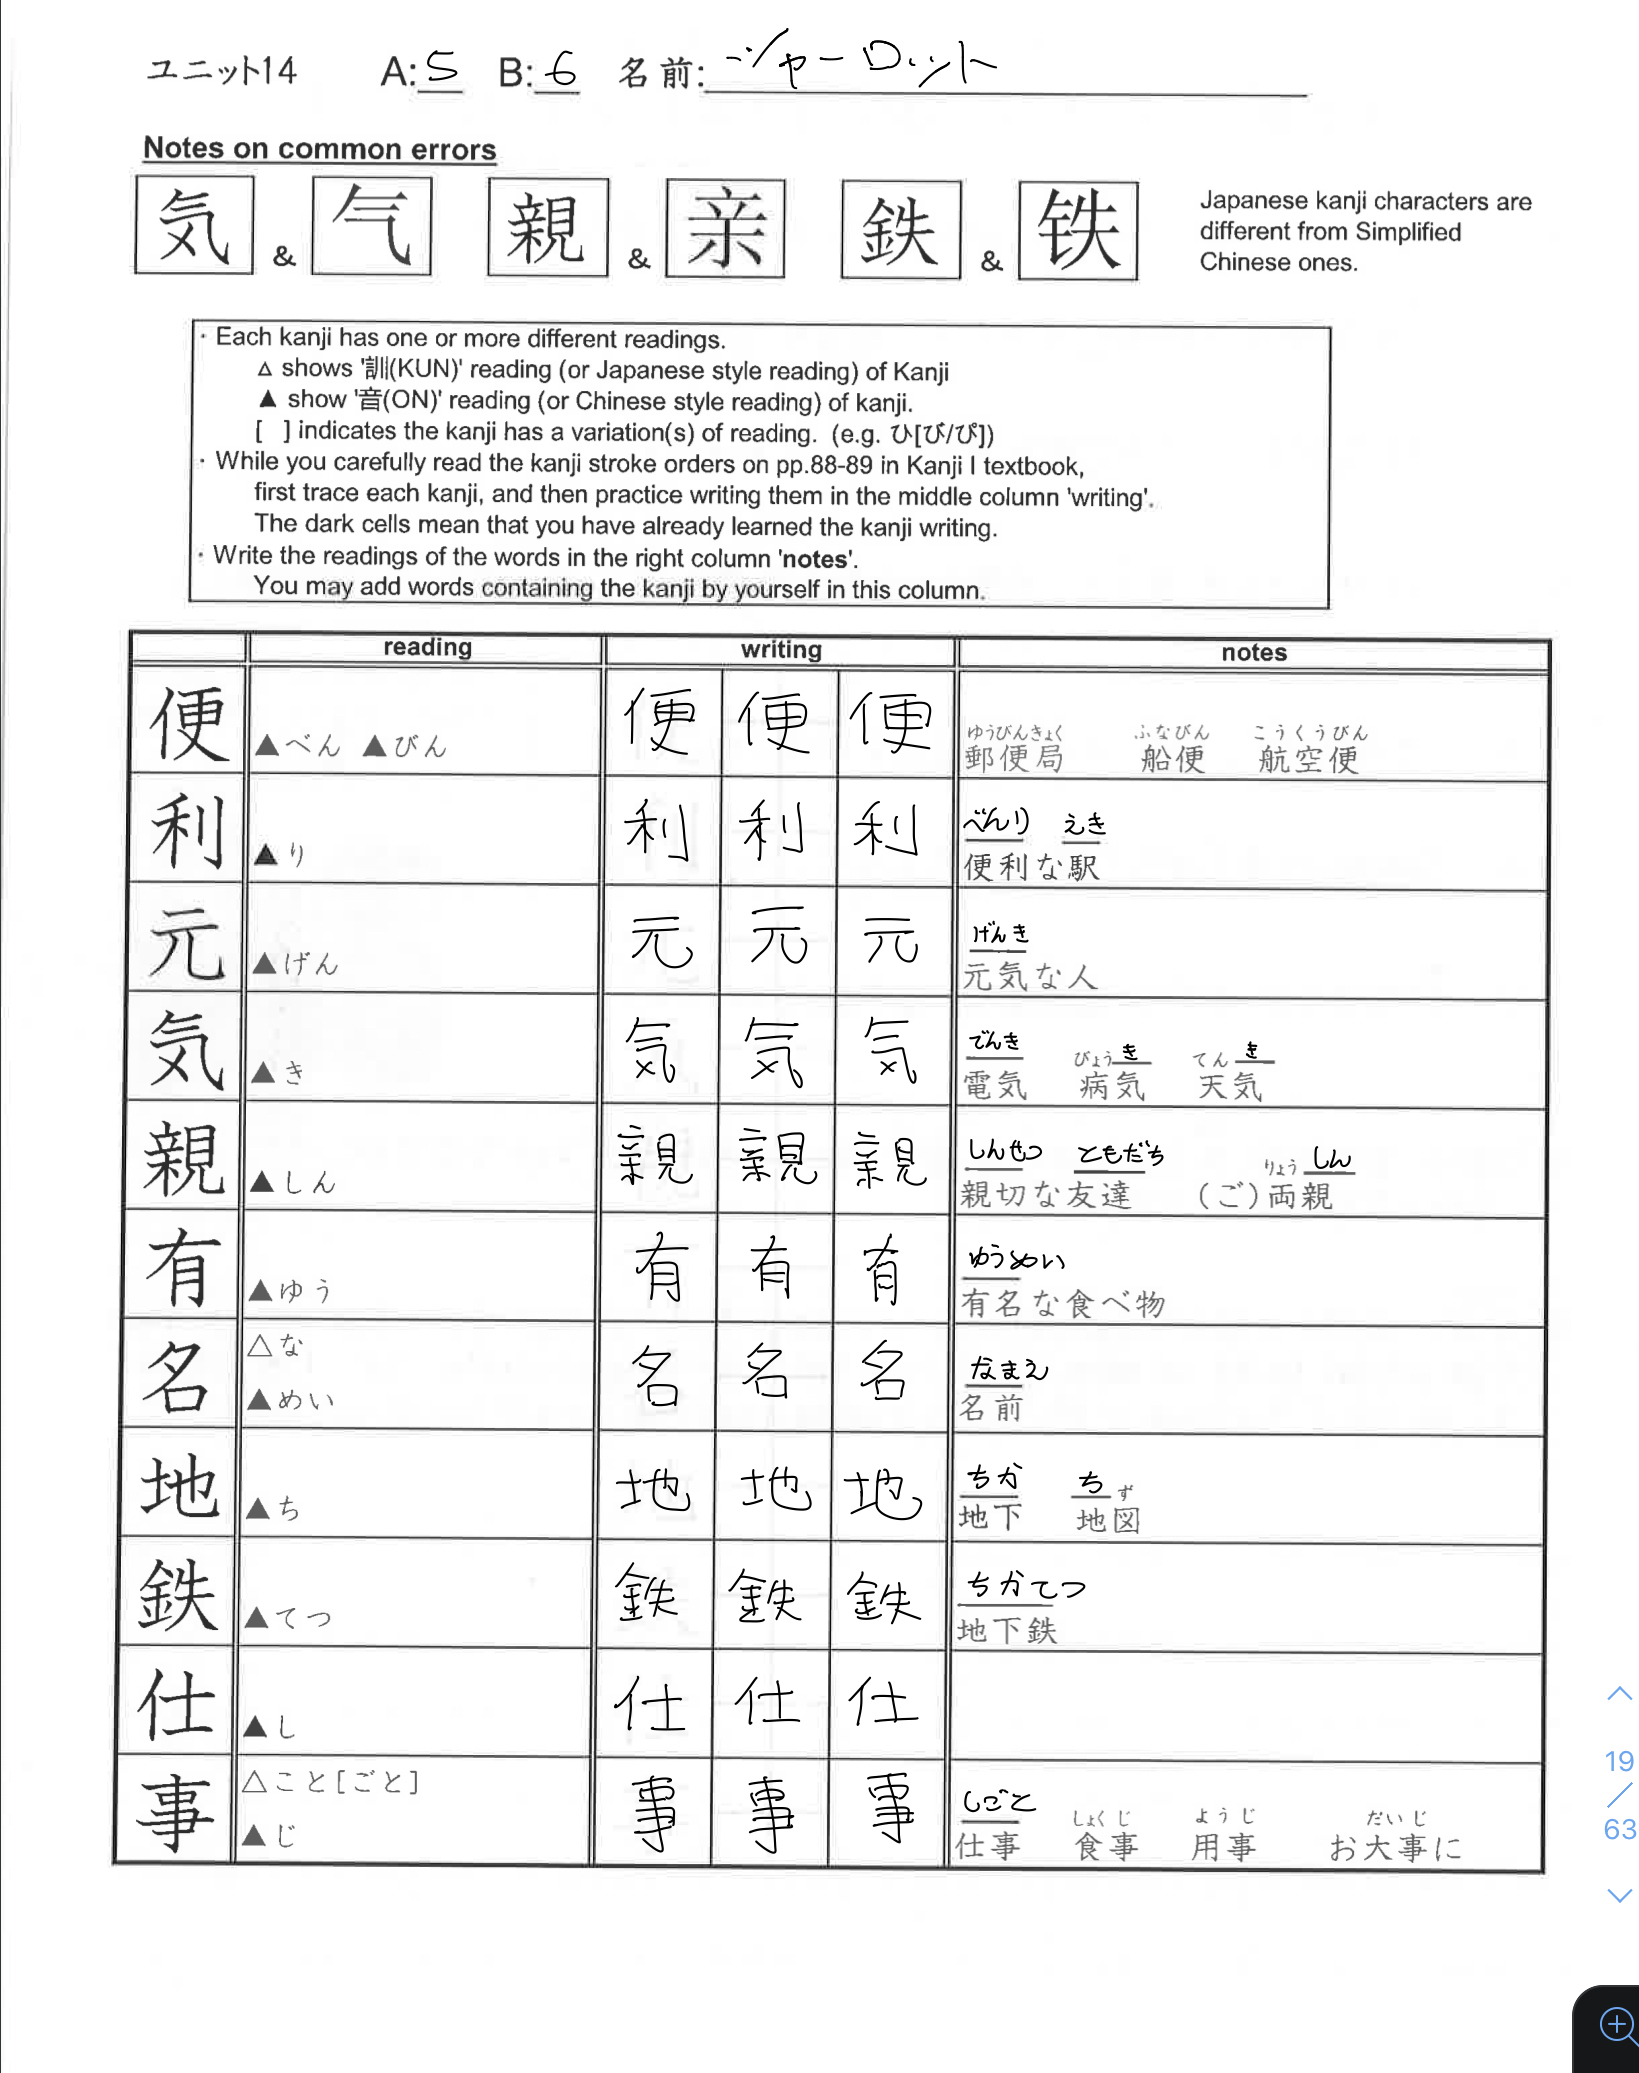 ユニット14 A:5 B:6 名前:シャーロット
Notes on common errors
気 & 气 親 & 亲 鉄 & 铁
Japanese kanji characters are
different from Simplified
Chinese ones.
· Each kanji has one or more different readings.
△ shows '訓(KUN)' reading (or Japanese style reading) of Kanji
▲ show '音(ON)' reading (or Chinese style reading) of kanji.
[ ] indicates the kanji has a variation(s) of reading. (e.g. ひ[び/ぴ])
· While you carefully read the kanji stroke orders on pp.88-89 in Kanji I textbook,
first trace each kanji, and then practice writing them in the middle column 'writing'.
The dark cells mean that you have already learned the kanji writing.
· Write the readings of the words in the right column 'notes'.
You may add words containing the kanji by yourself in this column.
reading writing notes
ゆうびんきょく ふなびん こうくうびん
便 ▲べん ▲びん 便 便 便 郵便局 船便 航空便
べんり えき
利 ▲り 利 利 利 便利な駅
げんき
元 ▲げん 元 元 元 元気な人
でんき びょうき てんき
気 ▲き 気 気 気 電気 病気 天気
しんせつ ともだち りょうしん
親 ▲しん 親 親 親 親切な友達 (ご)両親
ゆうめい
有 ▲ゆう 有 有 有 有名な食べ物
△な なまえ
名 ▲めい 名 名 名 名前
ちか ちず
地 ▲ち 地 地 地 地下 地図
ちかてつ
鉄 ▲てつ 鉄 鉄 鉄 地下鉄
仕 ▲し 仕 仕 仕
△こと[ごと] しごと しょくじ ようじ だいじ
事 ▲じ 事 事 事 仕事 食事 用事 お大事に
19
/
63